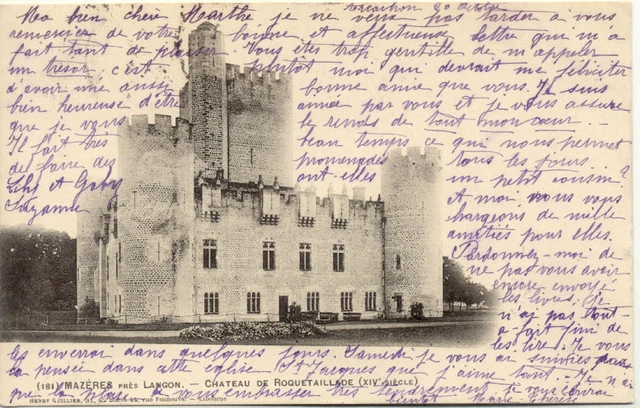 Arcachon 20 octobre
Ma bien chère Marthe je ne veux pas tarder à vous
remercier de votre bonne et affectueuse lettre qui m'a
fait tant de plaisir Vous êtes trop gentille de m'appeler
un trésor c'est plutôt moi qui devrait me féliciter
d'avoir une aussi bonne amie que vous. Je suis
bien heureuse d'être aimée par vous et je vous assure
que je vous le rends de tout mon cœur —
Il fait très beau temps ce qui nous permet
de faire des promenades tous les jours.
et Gaby ont-elles un petit cousin?
Suzanne et moi, nous vous
chargeons de mille
amitiés pour elles.
Pardonnez-moi de
ne pas vous avoir
encore envoyé
les livres, je
n'ai pas tout
à-fait fini de
les lire. Je vous
les enverrai dans quelques jours. Samedi je vous ai suivies par
la pensée dans cette église St Jacques que j'aime tant. Je n'ai
que la place de vous embrasser très tendrement
(181) MAZÈRES PRÈS LANGON. — CHATEAU DE ROQUETAILLADE (XIVe SIÈCLE)
HENRY GUILLIER, rue Fonneuve. — Libourne